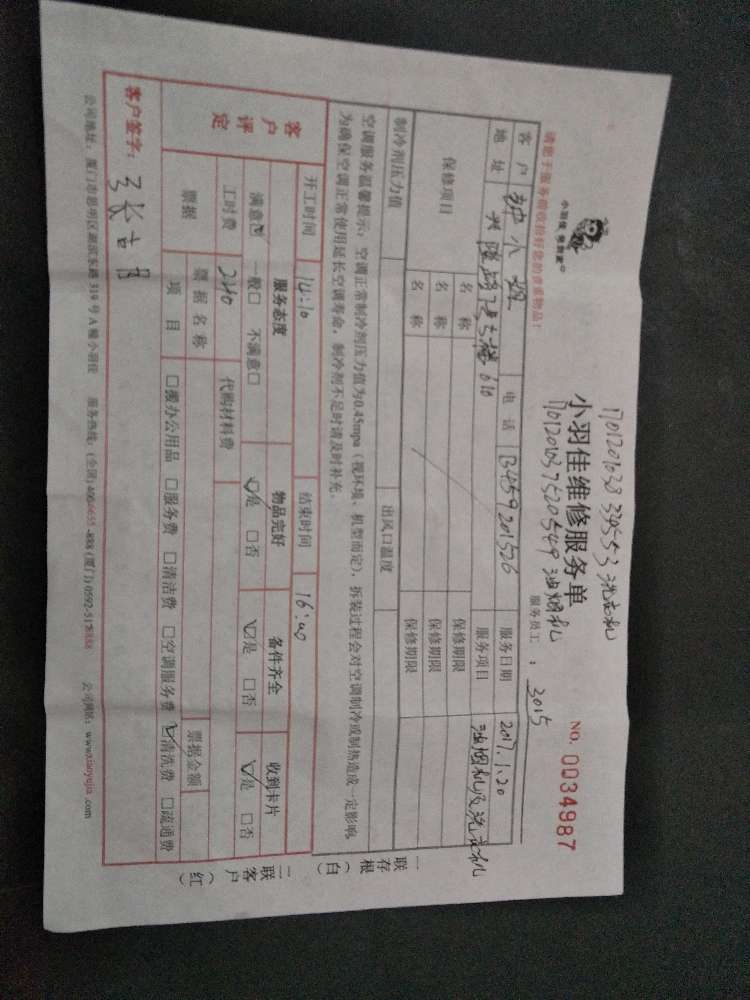 小羽佳 您的管家
17012010383 39553 洗衣机
小羽佳维修服务单
17012010 37520549 油烟机
NO. 0034987
请您于服务前收拾好您的贵重物品!
服务员工: 3015
客户 小姐 电话 13459201526 服务日期 2017.1.20
地址 610 服务项目 油烟机及洗衣机
保修项目 名称 保修期限
名称 保修期限
名称 保修期限
制冷剂压力值 出风口温度
空调服务温馨提示:空调正常制冷剂压力值为0.45mpa(视环境、机型而定),拆装过程会对空调制冷或制热造成一定影响,
为确保空调正常使用延长空调寿命,制冷剂不足时请及时补充。
开工时间 14:10 结束时间 16:00
客户评定 服务态度 物品完好 备件齐全 收到卡片
满意☑ 一般□ 不满意□ ☑是 □否 ☑是 □否 ☑是 □否
工时费 240 代购材料费
票据 票据名称 票据金额
项目 □搬办公用品 □服务费 □清洁费 □空调服务费 ☑清洗费 □疏通费
客户签字:
公司地址:厦门市思明区湖滨东路319号A幢小羽佳 服务热线:(全国)400-6655-888 (厦门)0592-5178888 公司网站:www.xiaoyujia.com
一联存根(白)
二联客户(红)